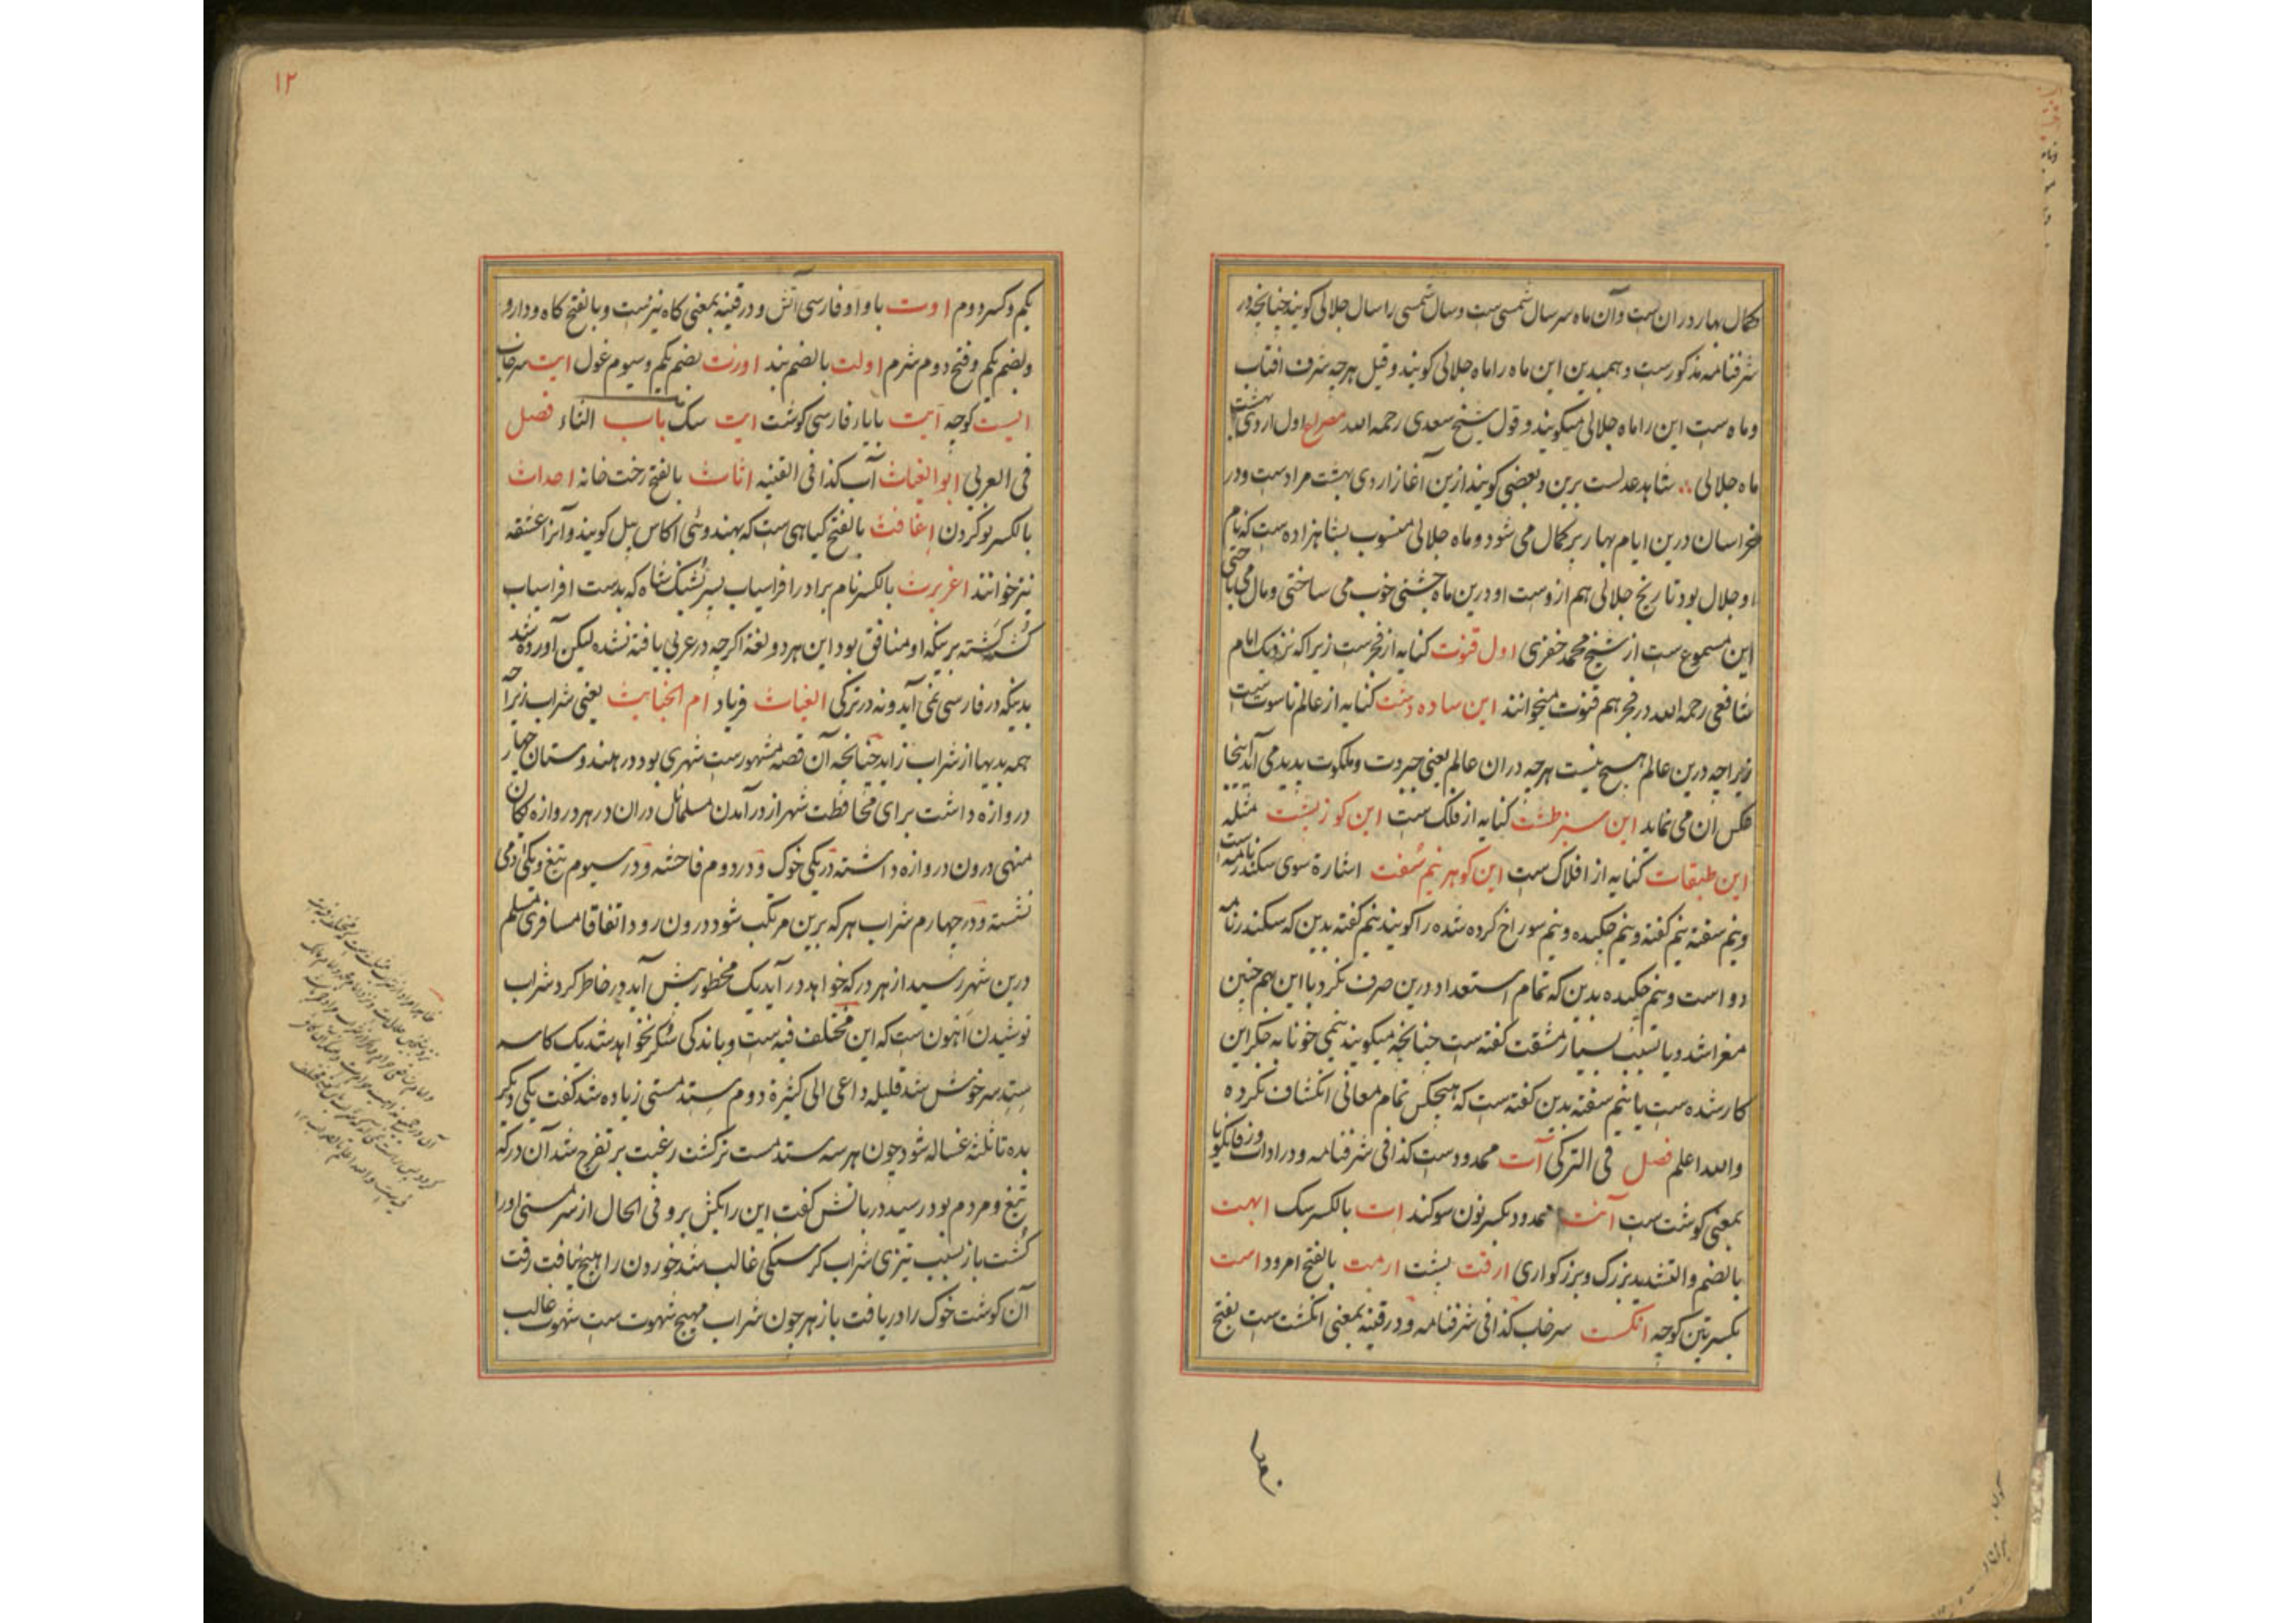 کمال بهار دران ست وآن ماه سر سال شمسی ست وسال شمسی را سال جلالی کویند چنانچه در
شرفنامه مذکورست و همبدین این ماه را ماه جلالی کویند و قیل هرچه شرف افتاب
وماه ست این را ماه جلالی میکویند و قول شیخ سعدی رحمه الله مصراع اول اردی بهشت
ماه جلالی ∴ شاهد عدلست برین و بعضی کویند ازین آغاز اردی بهشت مرادست ودر
خراسان درین ایام بهار بر کمال می شود و ماه جلالی منسوب بشاهزاده ست که نام
او جلال بود تاریخ جلالی هم ازوست او درین ماه جشنی خوب می ساختی ومال می
این مسموع ست از شیخ محمد خفری اول قنوت کنایه از فجرست زیراکه نزدیک امام
شافعی رحمه الله در فجر هم قنوت میخوانند این ساده دشت کنایه از عالم ناسوت ست
زیراچه درین عالم هیچ نیست هرچه دران عالم یعنی جبروت وملکوت پدیدمی آید اینجا
عکس ان می نماید این سبز طشت کنایه از فلک ست این کوز پشت مثله
این طبقات کنایه از افلاک ست این کوهر نیم سفت اشارة سوی سکندرنامه است
ونیم سفته نیم کفته ونیم چکیده ونیم سوراخ کرده شده را کویند نیم کفته بدین که سکندرنامه
دو است ونیم چکیده بدین که تمام استعداد درین صرف نکرد با این هم چنین
مغرا شد ویا بسبب بسیار مشقت کفته ست چنانچه میکویند نیمی خونابه جکر این
کار شده ست یا نیم سفته بدین کفته ست که هیچکس تمام معانی انکشاف نکرده
والله اعلم فصل فی الترکی آت محدودست کذا فی شرفنامه و در ادات و زفانکویا
بمعنی کوشت ست آنت محدود بکسر نون سوکند ات بالکسر سک ابهت
بالضم والتشدید بزرک وبزرکواری ارقت پشت ارمت بالفتح امرود است
بکسرتین کوچه انکست سرخاب کذا فی شرفنامه و در قنیه بمعنی انکشت ست بفتح
۱۲
یکم وکسر دوم اوت با واو فارسی آتش و در قنیه بمعنی کاه نیزست وبالفتح کاه ودارو
وبضم یکم وفتح دوم شرم اولت بالضم بند اورت بضم یکم وسیوم غول ایت سرخاب
الیست کوچه آیت بایاء فارسی کوشت ایت سک باب الثاء فصل
فی العربی ابوالغیاث آب کذا فی القنیه اثاث بالفتح رخت خانه احداث
بالکسر نو کردن اغافث بالفتح کیاهی ست که بهندوئی اکاس بیل کویند وآنرا عشقه
نیز خوانند اغریرث بالکسر نام برادر افراسیاب پسر پشنک شاه که بدست افراسیاب
کشته کشته بر نیکه او منافق بود این هر دو لغة اکرچه در عربی یافته نشده لیکن آورده شد
بدینکه در فارسی نمی آید و نه در ترکی الغیاث فریاد ام الخبایث یعنی شراب زیراچه
همه بدیها از شراب زاید چنانچه آن قصه مشهورست شهری بود در هندوستان چهار
دروازه داشت برای محافظت شهر از درآمدن مسلمانان دران در هر دروازه یکان
منهی درون دروازه داشته در یکی خوک ودر دوم فاحشه ودر سیوم تیغ ویکی ذمی
نشسته ودر چهارم شراب هرکه برین مرتکب شود درون رود اتفاقا مسافری مسلم
درین شهر رسید از هر درکه خواهد درآید یک محظور پیش آید در خاطر کرد شراب
نوشیدن اهون ست که این مختلف فیه ست وباندکی سکر نخواهد شد یک کاسه
ستد سرخوش شد قلیله داعی الی کثیرة دوم ستد مستی زیاده شد کفت یکی دیکر
بده تا ثلثه غساله شود چون هر سه ستد مست تر کشت رغبت بر تفرج شد آن در که
تیغ و مردم بود رسید دربانش کفت این را بکش برو فی الحال از سر مستی اورا
کشت باز بسبب تیزی شراب کرسنکی غالب شد خوردن را هیچ نیافت رفت
آن کوشت خوک را دریافت باز هر چون شراب مهیج شهوت ست شهوت غالب